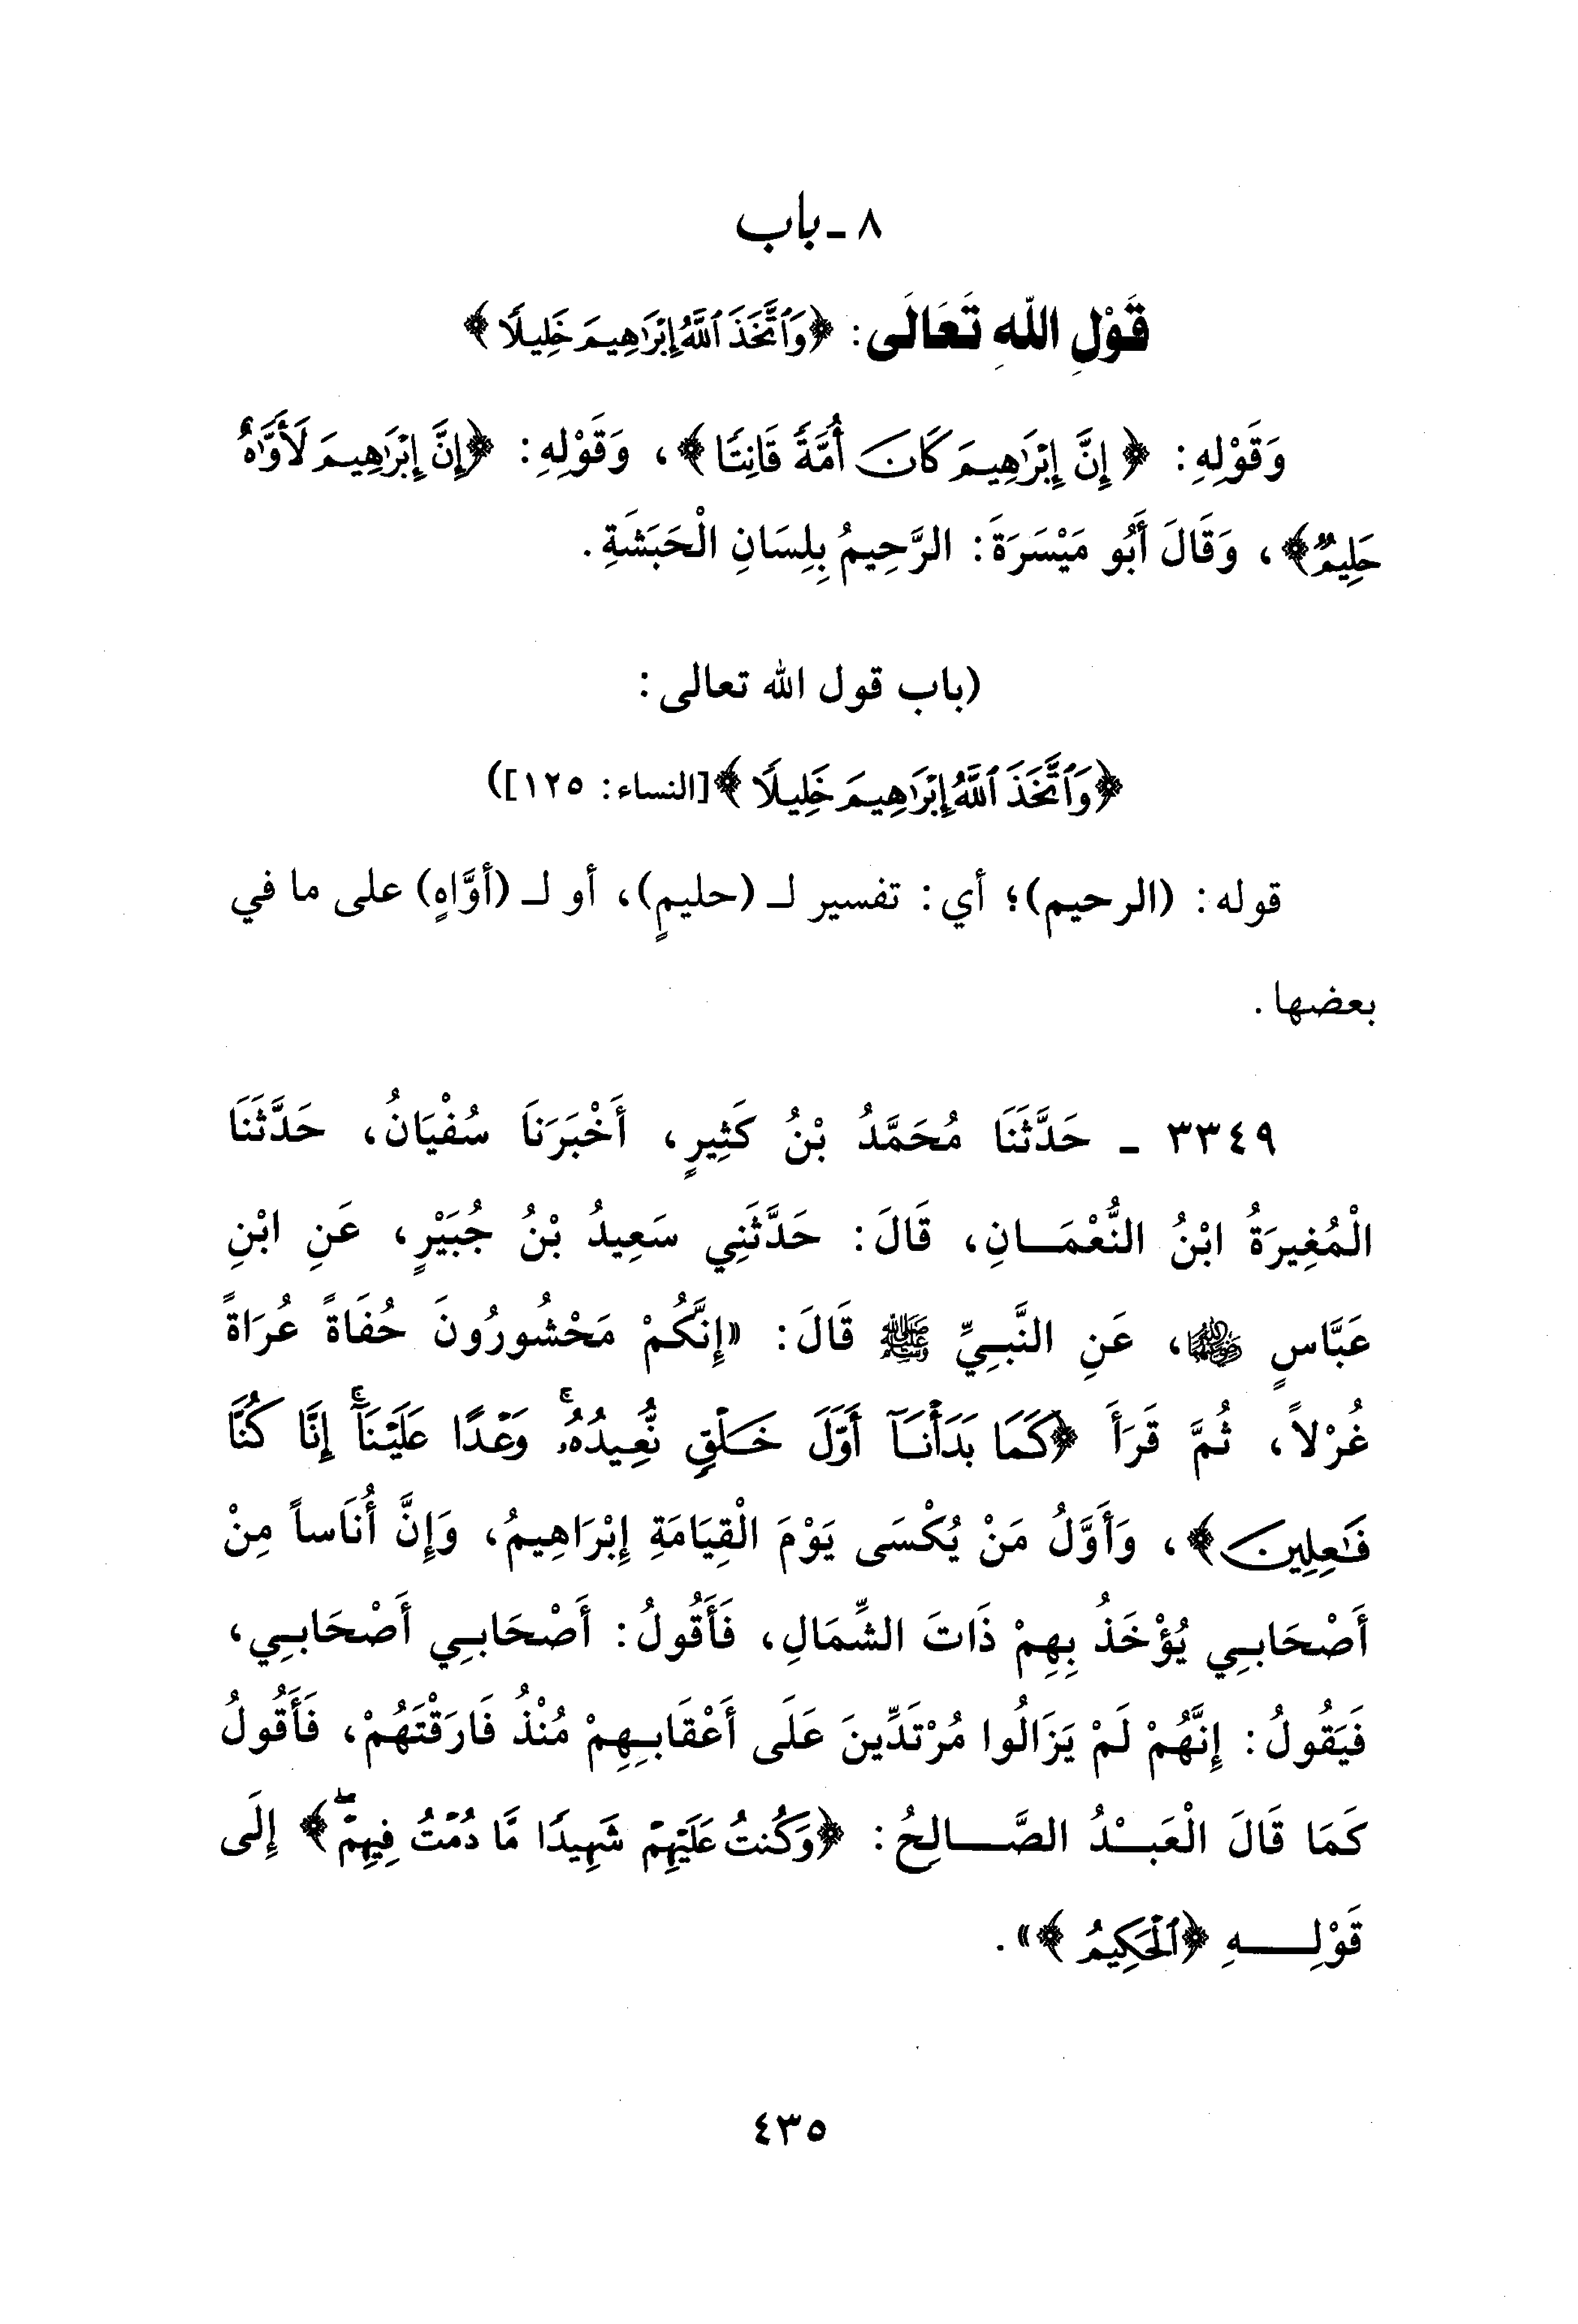 ٨ - باب
قَوْلِ اللهِ تَعَالَى: ﴿وَٱتَّخَذَ ٱللَّهُ إِبْرَٰهِيمَ خَلِيلًا﴾
وَقَوْلِهِ: ﴿إِنَّ إِبْرَٰهِيمَ كَانَ أُمَّةً قَانِتًا﴾، وَقَوْلِهِ: ﴿إِنَّ إِبْرَٰهِيمَ لَأَوَّٰهٌ
حَلِيمٌ﴾، وَقَالَ أَبُو مَيْسَرَةَ: الرَّحِيمُ بِلِسَانِ الْحَبَشَةِ.
(باب قول الله تعالى:
﴿وَٱتَّخَذَ ٱللَّهُ إِبْرَٰهِيمَ خَلِيلًا﴾[النساء: ١٢٥])
قوله: (الرحيم)؛ أي: تفسير لـ (حليمٍ)، أو لـ (أوَّاهٍ) على ما في
بعضها.
٣٣٤٩ - حَدَّثَنَا مُحَمَّدُ بْنُ كَثِيرٍ، أَخْبَرَنَا سُفْيَانُ، حَدَّثَنَا
الْمُغِيرَةُ ابْنُ النُّعْمَـانِ، قَالَ: حَدَّثَنِي سَعِيدُ بْنُ جُبَيْرٍ، عَنِ ابْنِ
عَبَّاسٍ ﵄، عَنِ النَّبِيِّ ﷺ قَالَ: «إِنَّكُمْ مَحْشُورُونَ حُفَاةً عُرَاةً
غُرْلاً، ثُمَّ قَرَأَ ﴿كَمَا بَدَأْنَآ أَوَّلَ خَلْقٍ نُّعِيدُهُۥ ۚ وَعْدًا عَلَيْنَآ ۚ إِنَّا كُنَّا
فَٰعِلِينَ﴾، وَأَوَّلُ مَنْ يُكْسَى يَوْمَ الْقِيَامَةِ إِبْرَاهِيمُ، وَإِنَّ أُنَاساً مِنْ
أَصْحَابِي يُؤْخَذُ بِهِمْ ذَاتَ الشِّمَالِ، فَأَقُولُ: أَصْحَابِي أَصْحَابِي،
فَيَقُولُ: إِنَّهُمْ لَمْ يَزَالُوا مُرْتَدِّينَ عَلَى أَعْقَابِهِمْ مُنْذُ فَارَقْتَهُمْ، فَأَقُولُ
كَمَا قَالَ الْعَبْـدُ الصَّـالِحُ: ﴿وَكُنتُ عَلَيْهِمْ شَهِيدًا مَّا دُمْتُ فِيهِمْ ۖ﴾ إِلَى
قَوْلِـهِ ﴿ٱلْحَكِيمُ﴾».
٤٣٥